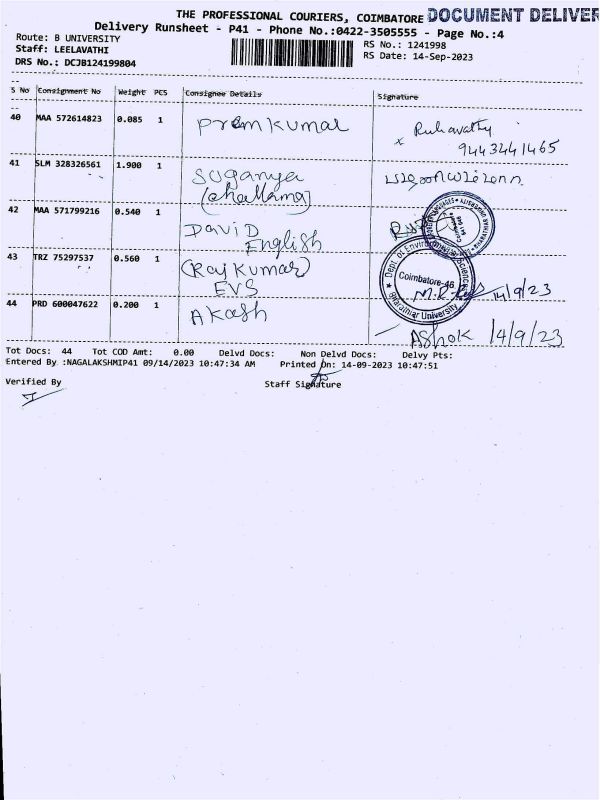 THE PROFESSIONAL COURIERS, COIMBATORE DOCUMENT DELIVER
Delivery Runsheet - P41 - Phone No.:0422-3505555 - Page No.:4
Route: B UNIVERSITY
RS No.: 1241998
Staff: LEELAVATHI
RS Date: 14-Sep-2023
DRS No.: DCJB124199804
S No Consignment No Weight PCS Consignee Details Signature
40 MAA 572614823 0.085 1 Premkumar Ruhavathy
x 9443441465
41 SLM 328326561 1.900 1 Suganya
(challama)
42 MAA 571799216 0.540 1 DaviD
English
43 TRZ 75297537 0.560 1 (Raj Kumar)
EVS
Dept. of Environmental Sciences
Coimbatore-46
Bharathiar University
14/9/23
44 PRD 600047622 0.200 1 Akash
AShok 14/9/23
Tot Docs: 44 Tot COD Amt: 0.00 Delvd Docs: Non Delvd Docs: Delvy Pts:
Entered By :NAGALAKSHMIP41 09/14/2023 10:47:34 AM Printed On: 14-09-2023 10:47:51
Verified By Staff Signature